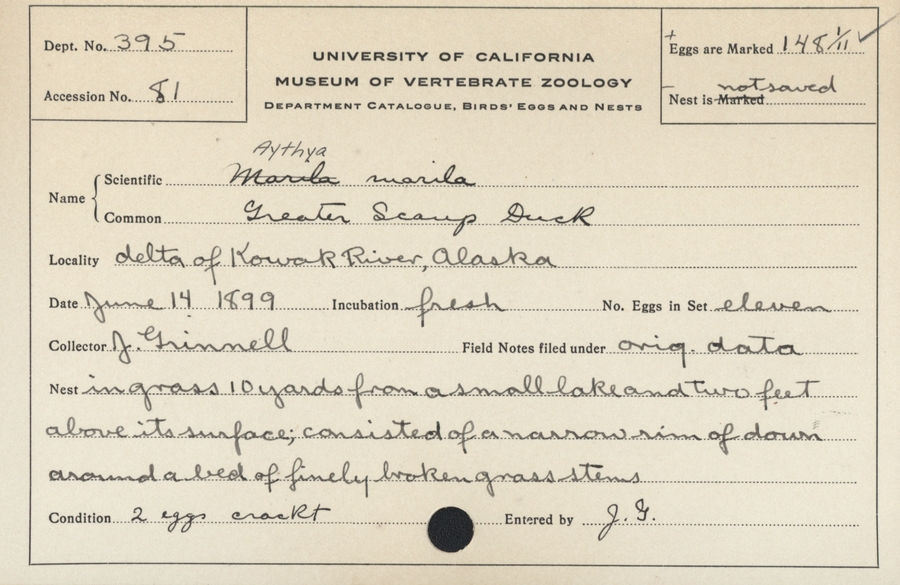 Dept. No. 395
Accession No. 81
UNIVERSITY OF CALIFORNIA
MUSEUM OF VERTEBRATE ZOOLOGY
DEPARTMENT CATALOGUE, BIRDS' EGGS AND NESTS
+ Eggs are Marked 148/11 ✓
– Nest is Marked not saved
Aythya
Name Scientific Marila marila
Common Greater Scaup Duck
Locality delta of Kowak River, Alaska
Date June 14 1899 Incubation fresh No. Eggs in Set eleven
Collector J. Grinnell Field Notes filed under orig. data
Nest in grass 10 yards from a small lake and two feet
above its surface; consisted of a narrow rim of down
around a bed of finely broken grass stems
Condition 2 eggs crackt Entered by J. G.